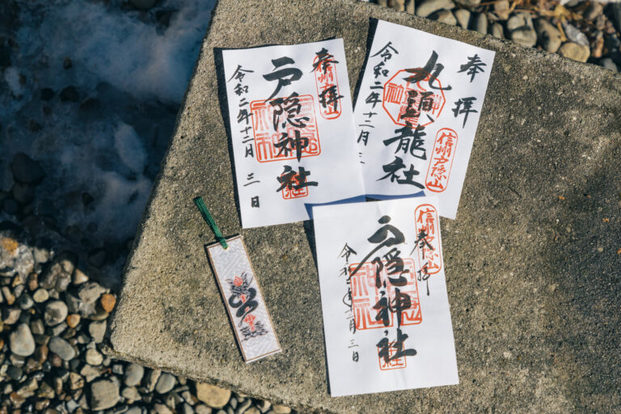 奉拝
信州戸隠山
戸隠神社
令和二年十二月三日
奉拝
九頭龍社
信州戸隠山
令和二年十二月三
信州戸隠山
奉拝
戸隠神社
令和二年十二月三日